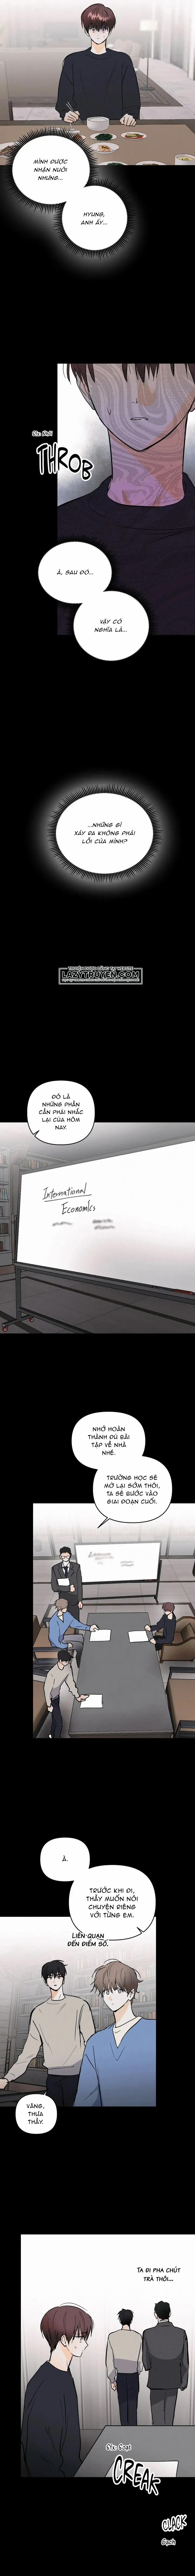 MÌNH ĐƯỢC
NHẬN NUÔI
NHƯNG...
HYUNG,
ANH ẤY...
THROB
À, SAU ĐÓ...
VẬY CÓ
NGHĨA LÀ...
...NHỮNG GÌ
XẢY RA KHÔNG PHẢI
LỖI CỦA MÌNH?
LAZYTRUYEN.COM
ĐÓ LÀ
NHỮNG PHẦN
CẦN PHẢI NHẮC
LẠI CỦA HÔM
NAY.
International
Economics
NHỚ HOÀN
THÀNH ĐỦ BÀI
TẬP VỀ NHÀ
NHÉ.
TRƯỜNG HỌC SẼ
MỞ LẠI SỚM THÔI,
TA SẼ BƯỚC VÀO
GIAI ĐOẠN CUỐI.
À.
TRƯỚC KHI ĐI,
THẦY MUỐN NÓI
CHUYỆN RIÊNG
VỚI TỪNG EM.
LIÊN QUAN
ĐẾN ĐIỂM SỐ.
VÂNG,
THƯA
THẦY.
TA ĐI PHA CHÚT
TRÀ THÔI...
CREAK
CLACK